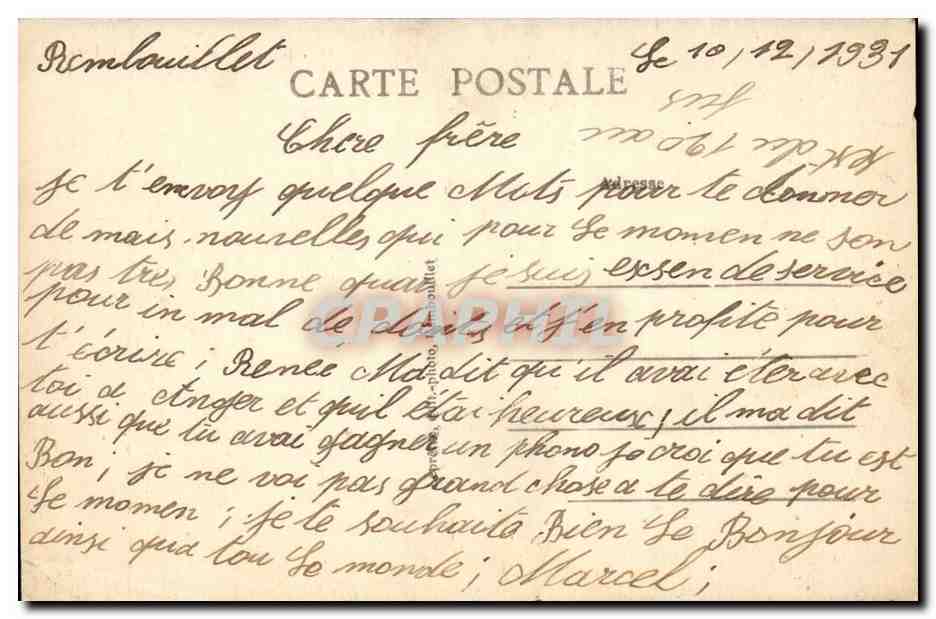 Rembouillet Le 10/12/1931
CARTE POSTALE
Chere frère
du 120 au
jus
Adresse
je t'envoy quelque Mots pour te donner
de mais nouvelles qui pour Le momen ne son
pas tres Bonne quar je suis exsen de service
pour in mal de dents et j'en profite pour
t'écrire; Renee Ma dit qu'il avai éter avec
toi a Anger et quil étai heureux; il ma dit
aussi que tu avai gagner un phono je croi que tu est
Bon; je ne voi pas grand chose a te dire pour
Le momen; je te souhaite Bien Le Bonjour
ainsi que tou Le monde; Marcel;
CPAPHIL